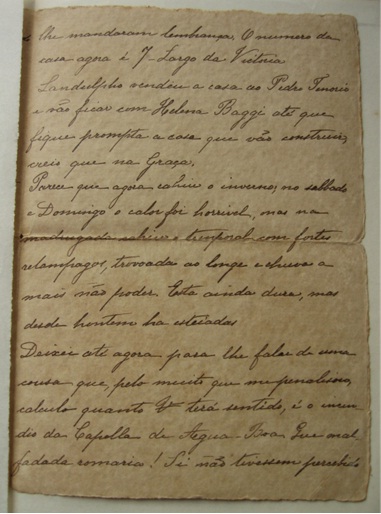 lhe mandaram lembrança. O numero da
casa agora é 7 - Largo da Victoria
Landulpho vendeu a casa ao Pedro Tenorio
e vão ficar com Helena Baggi até que
fique prompta a casa que vão construir,
creio que na Graça.
Parece que agora cahiu o inverno; no sabbado
e Domingo o calor foi horrivel, mas na
madrugada cahiu o temporal com fortes
relampagos, trovoada ao longe e chuva a
mais não poder. Esta ainda dura, mas
desde hontem ha estiadas
Deixei até agora para lhe falar de uma
cousa que, pelo muito que me penalisou,
calculo quanto Vª terá sentido, é o incen-
dio da Capella de Agua - Boa. Que mal
fadada romaria! Si não tivessem percebido